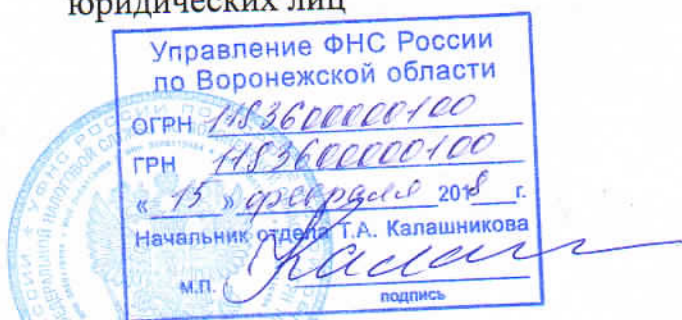 юридических лиц
Управление ФНС России
по Воронежской области
ОГРН 1183600000100
ГРН 1183600000100
« 15 » февраля 2018 г.
Начальник отдела Т.А. Калашникова
М.П.
подпись